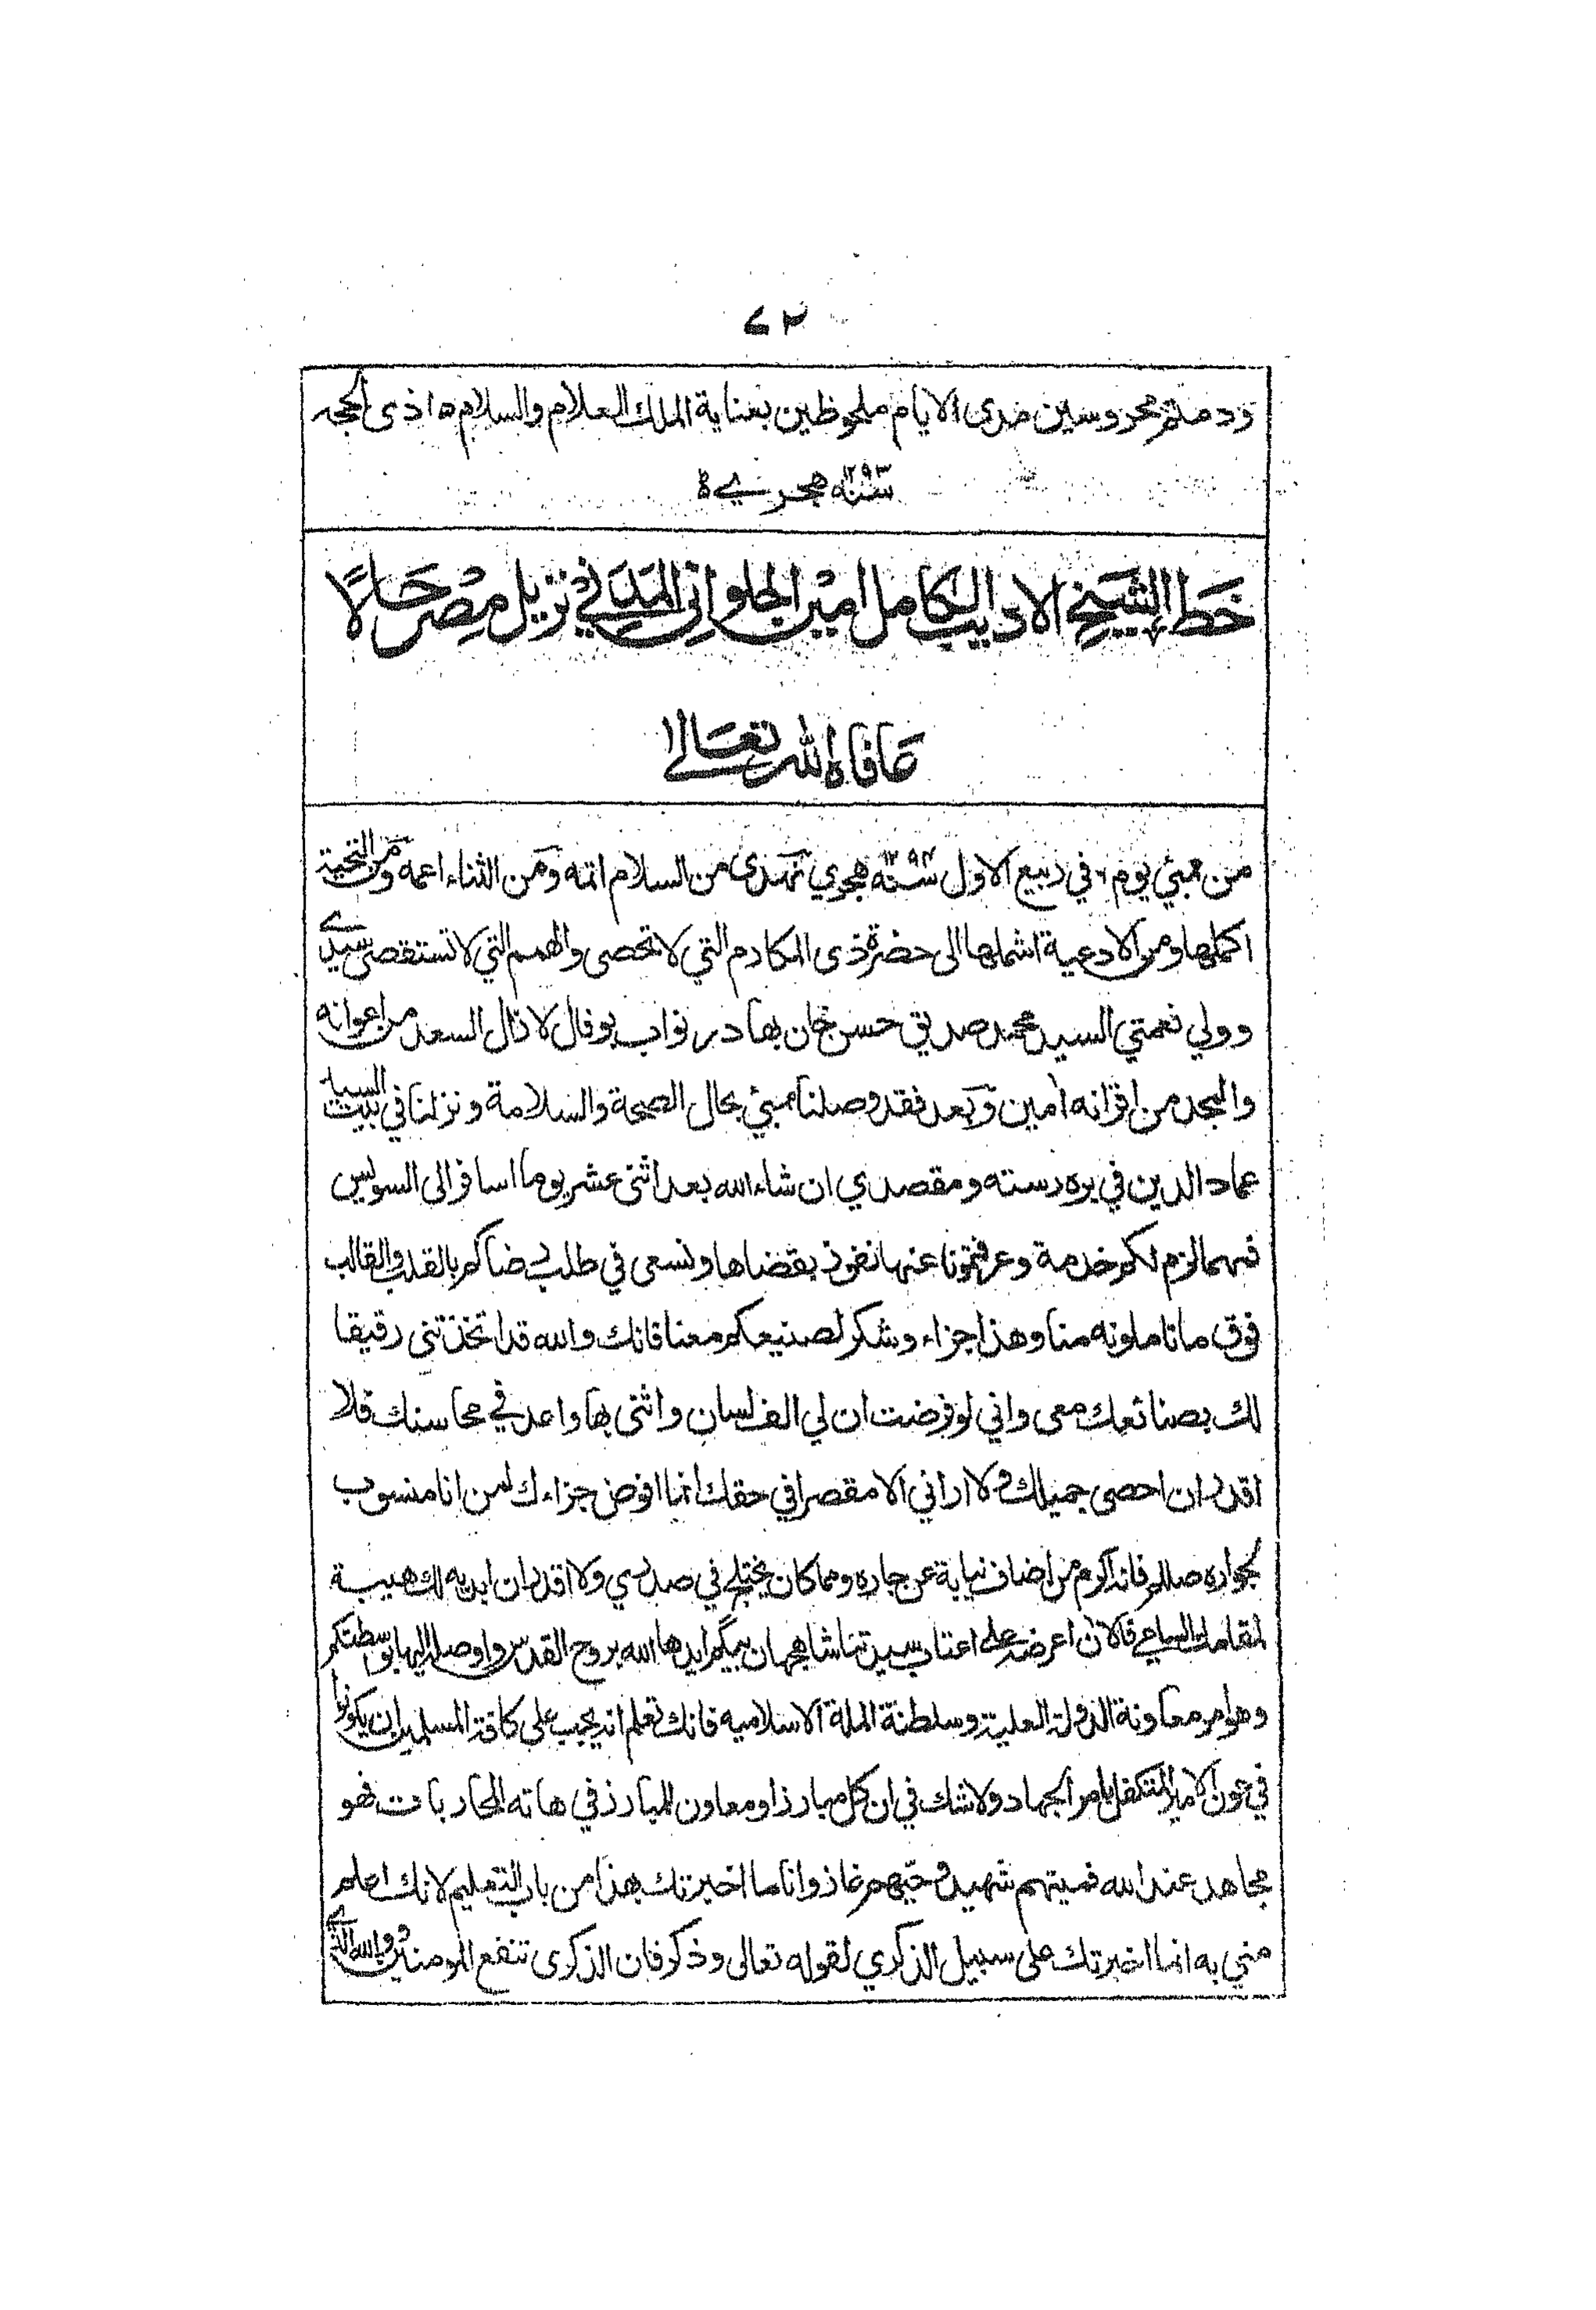 ٧٢
ودمتم محروسين مدى الايام ملحوظين بعناية الملك العلام والسلام ٥ا ذى الحجه
سنة ١٢٩٣ هجرية
خط الشيخ الاديب الكامل امين الحلواني المدني نزيل مصر حالاً
عافاه الله تعالى
من بمبئي يوم ٢ في ربيع الاول سنة ١٢٩٤ هجري نهدى من السلام اتمه ومن الثناء اعمه ومن التحية
اكملها ومن الادعية اشملها الى حضرة ذى المكارم التي لا تحصى والهمم التي لا تستقصى سيدي
وولي نعمتي السيد محمد صديق حسن خان بهادر نواب بوفال لا زال السعد من اعوانه
والمجد من اقرانه امين وبعد فقد وصلنا بمبئي بحال الصحة والسلامة ونزلنا في بيت السيد
عماد الدين في بره رسته ومقصدي ان شاء الله بعد اثنى عشر يوما اسافر الى السويس
فمهما لزم لكم خدمة وعرفتمونا عنها نفوذ بقضاها ونسعى في طلب رضاكم بالقلب والقالب
فوق ما تاملونه منا وهذا جزاء وشكر لصنيعكم معنا فانك والله قد اتخذتنى رقيقا
لك بصنائعك معى واني لو فرضت ان لي الف لسان واثنى بها واعد في محاسنك فلا
اقدر ان احصى جميلك ولا اراني الا مقصرا في حقك انما افوض جزاءك لمن انا منسوب
بجواره صللم فانه اكرم من اضاف نيابة عن جاره ومما كان يختلج في صدري ولا اقدر ان ابديه لك هيبة
لمقامك السامي فالان اعرضه على اعتاب سيدتنا شاهجهان بيگم ايدها الله بروح القدس واوصله اليها بواسطتكم
وهو امر معاونة الدولة العلية وسلطنة الملة الاسلاميه فانك تعلم انه يجب على كافة المسلمين ان يكونوا
في عون الامير المتكفل بامر الجهاد ولا شك في ان كل مبارز او معاون للمبارز في هاته المحاربات فهو
مجاهد عند الله فميتهم شهيد وحيهم غاز وانا ما اخبرتك بهذا من باب التعليم لانك اعلم
مني به انما اخبرتك على سبيل الذكري لقوله تعالى وذكر فان الذكرى تنفع المومنين و والله الذي